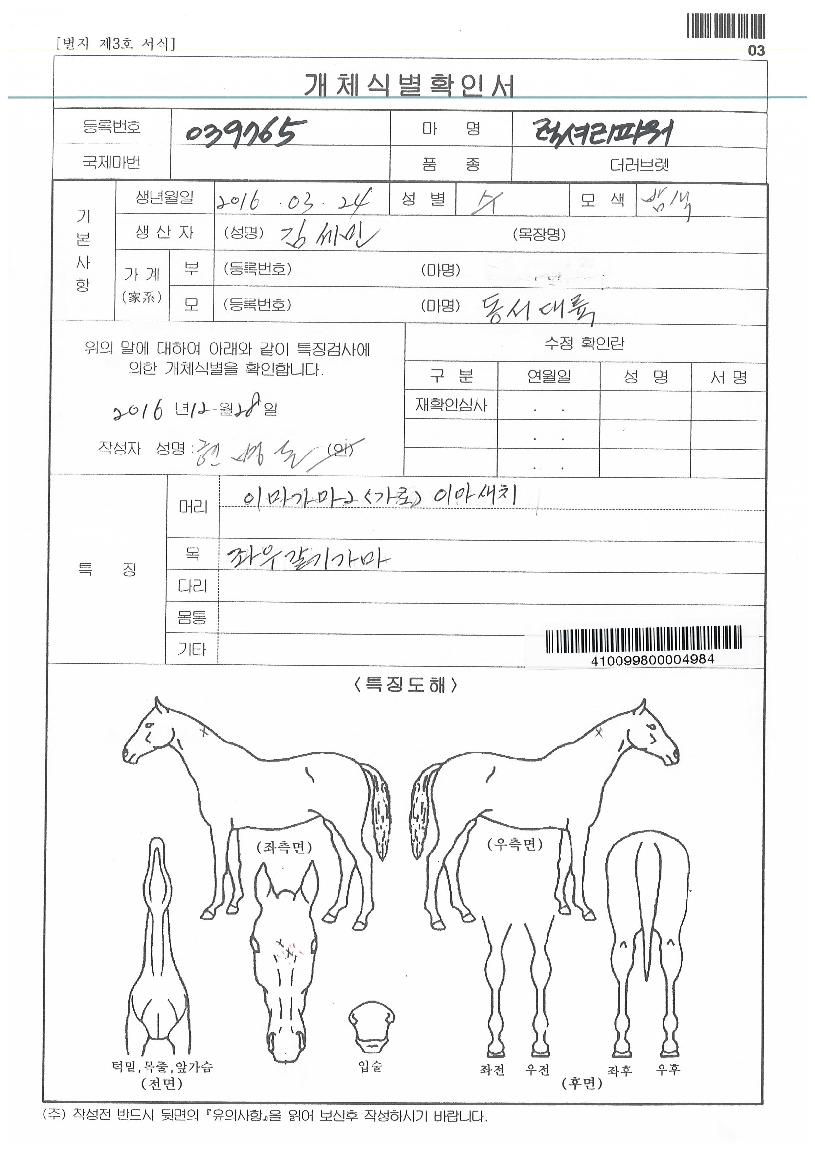 [별지 제3호 서식]
03
개체식별확인서
등록번호 039765 마 명 럭셔리파워
국제마번 품 종 더러브렛
기본사항
생년월일 2016 . 03 . 24 성 별 수 모 색 밤색
생 산 자 (성명) 김세민 (목장명)
가 계 (家系) 부 (등록번호) (마명)
모 (등록번호) (마명) 동서대륙
위의 말에 대하여 아래와 같이 특징검사에
의한 개체식별을 확인합니다.
2016 년 12 월 28 일
작성자 성명 : (인)
수정 확인란
구 분 연월일 성 명 서 명
재확인심사 . .
. .
. .
특 징
머리 이마가마2 <가로> 이마새치
목 좌우갈기가마
다리
몸통
기타
410099800004984
<특징도해>
(좌측면) (우측면)
턱밑,목줄,앞가슴
(전면)
입술
좌전 우전 좌후 우후
(후면)
(주) 작성전 반드시 뒷면의 『유의사항』을 읽어 보신후 작성하시기 바랍니다.